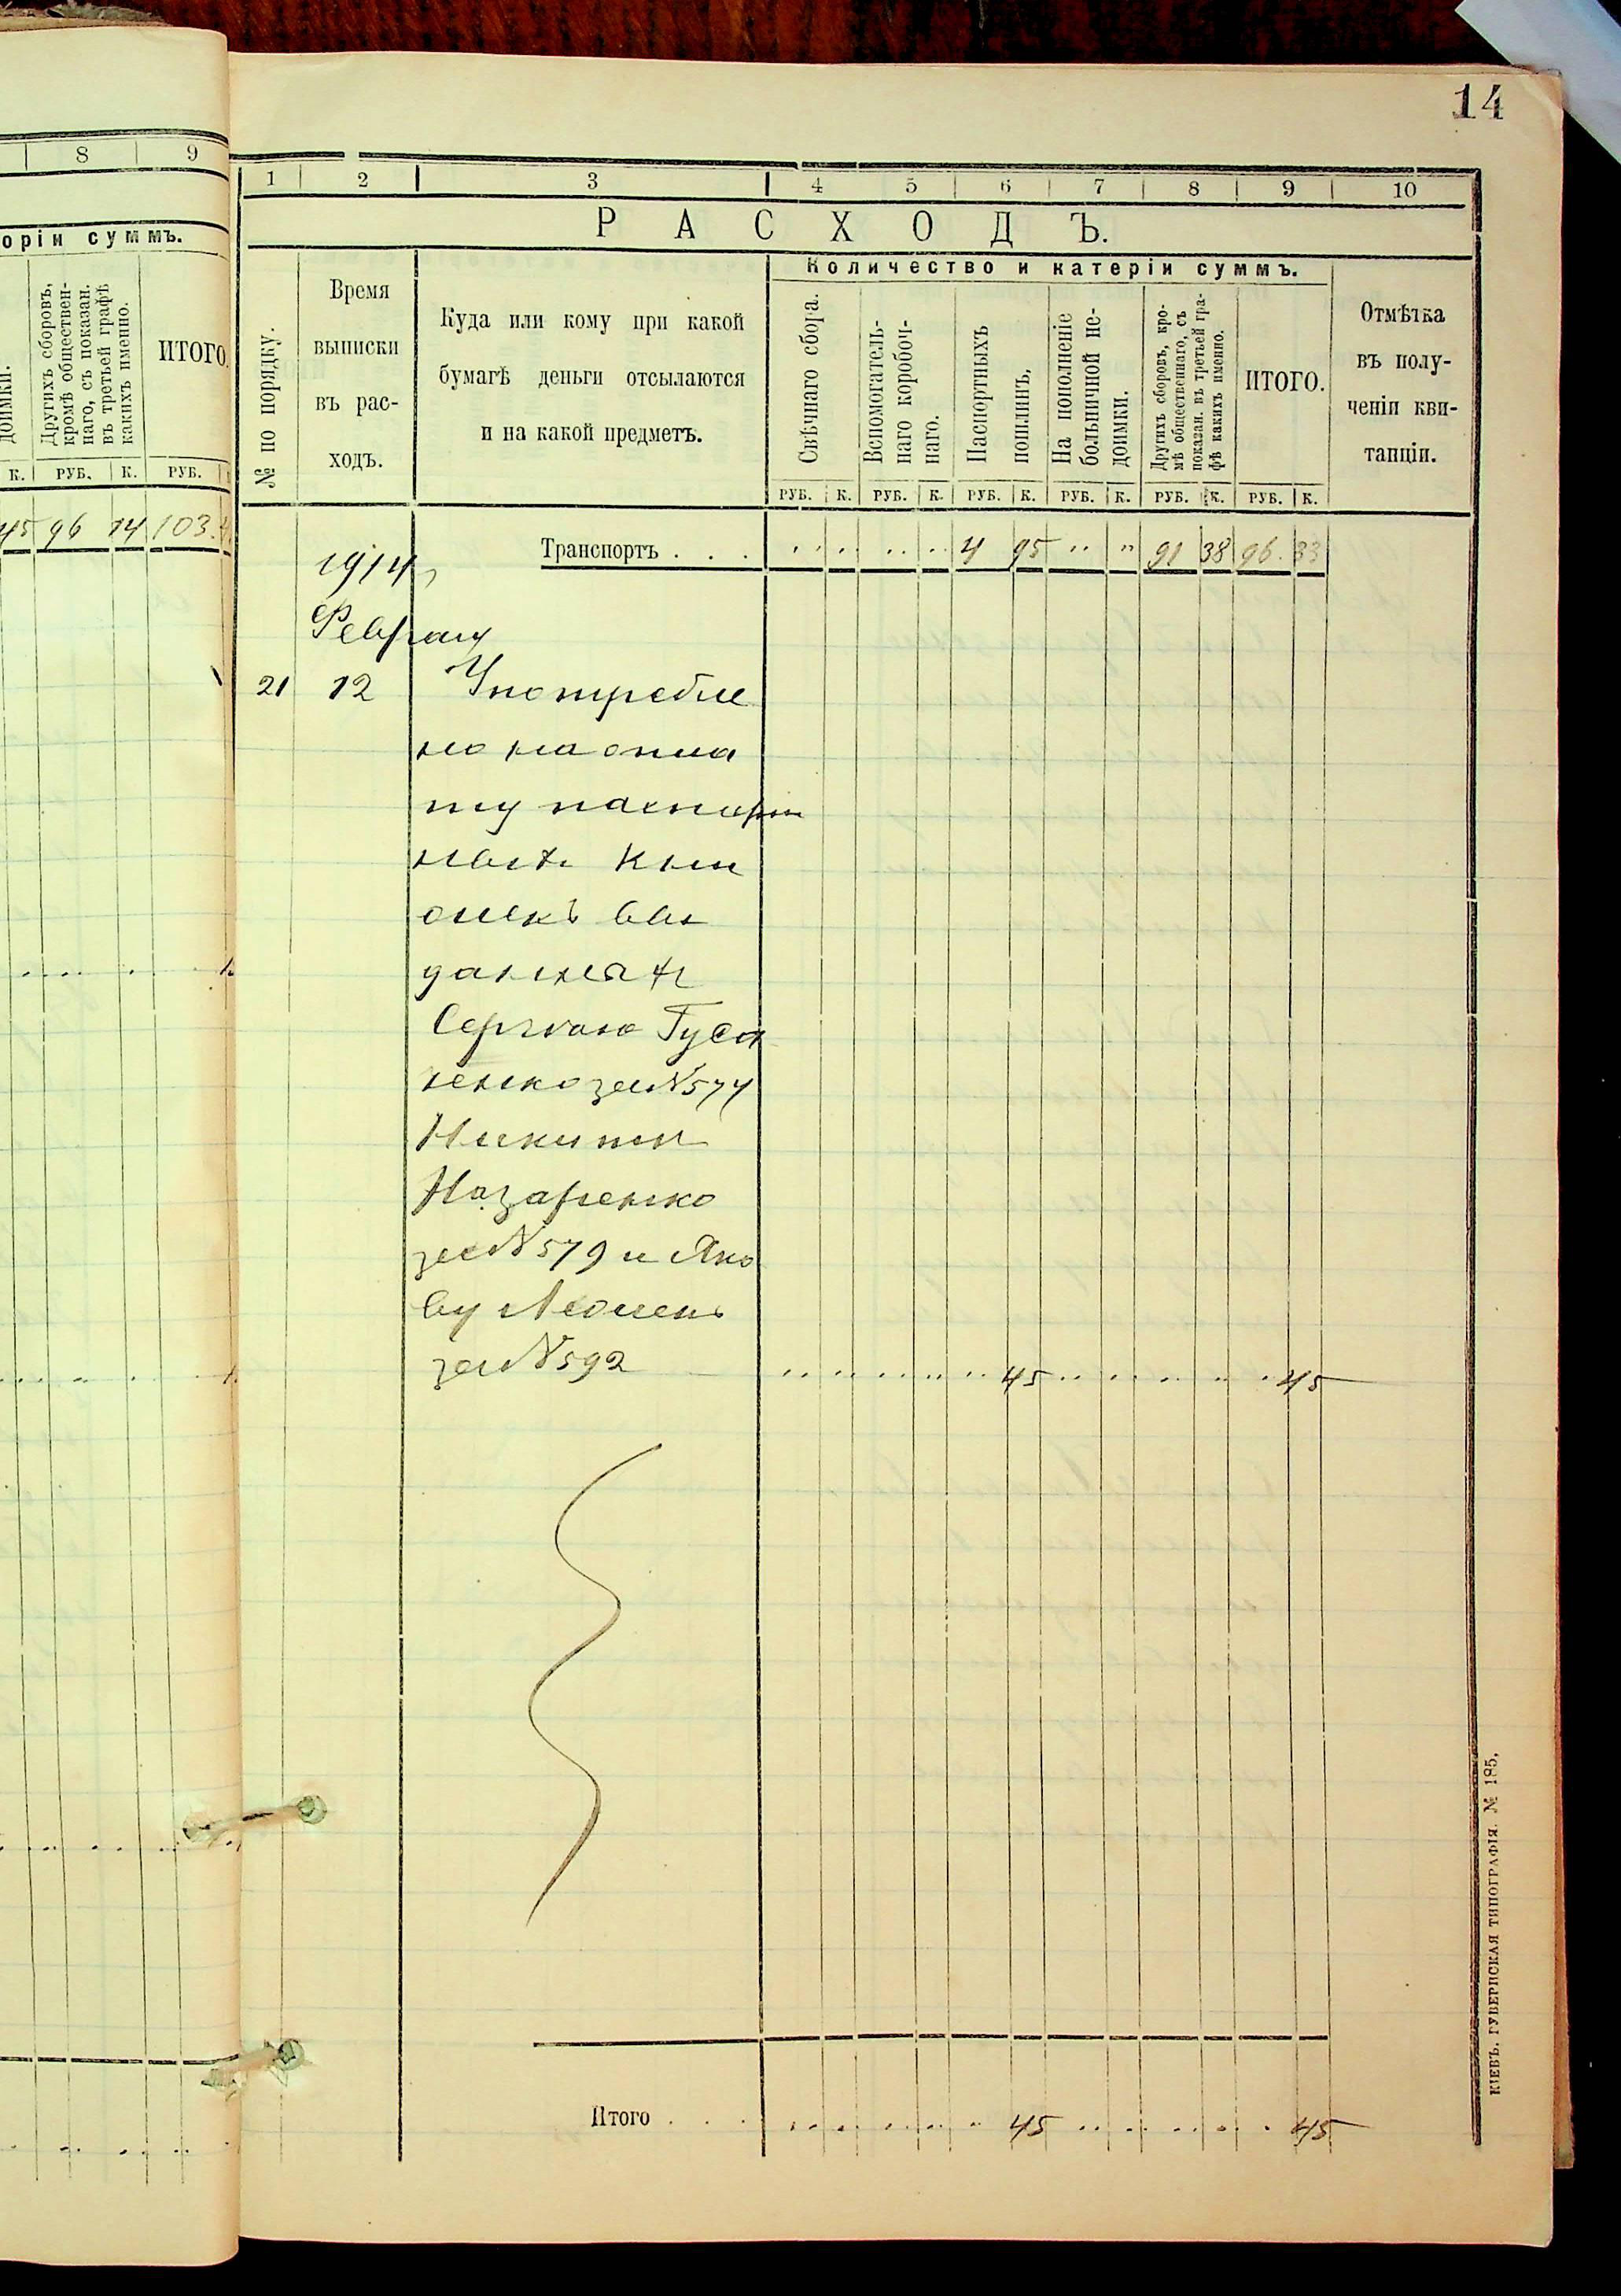 14
8 9
оріи суммъ.
доимки.
Другихъ сборовъ,
кромѣ обществен-
наго, съ показан.
въ третьей графѣ
какихъ именно.
ИТОГО.
К. РУБ. К. РУБ.
45 96 14 103
1 2 3 4 5 6 7 8 9 10
РАСХОДЪ.
№ по порядку.
Время
выписки
въ рас-
ходъ.
Куда или кому при какой
бумагѣ деньги отсылаются
и на какой предметъ.
Количество и катеріи суммъ.
Свѣчнаго сбора.
Вспомогатель-
наго коробоч-
наго.
Паспортныхъ
пошлинъ.
На пополненіе
больничной не-
доимки.
Другихъ сборовъ, кро-
мѣ общественнаго, съ
показан. въ третьей гра-
фѣ какихъ именно.
ИТОГО.
Отмѣтка
въ полу-
ченіи кви-
танціи.
РУБ. К. РУБ. К. РУБ. К. РУБ. К. РУБ. К. РУБ. К.
Транспортъ . . . 4 95 " " 91 38 96. 33
1914
Февраля
21 12 Употребле
но на опла
ту паспорт
ныхъ кни
жекъ вы
данныхъ
Сергѣю Гуса
ренко за № 574
Никитѣ
Назаренко
за № 579 и Яко
ву
за № 592 45 45
Итого . . . 45 45
КІЕВЪ. ГУБЕРНСКАЯ ТИПОГРАФІЯ. № 185.